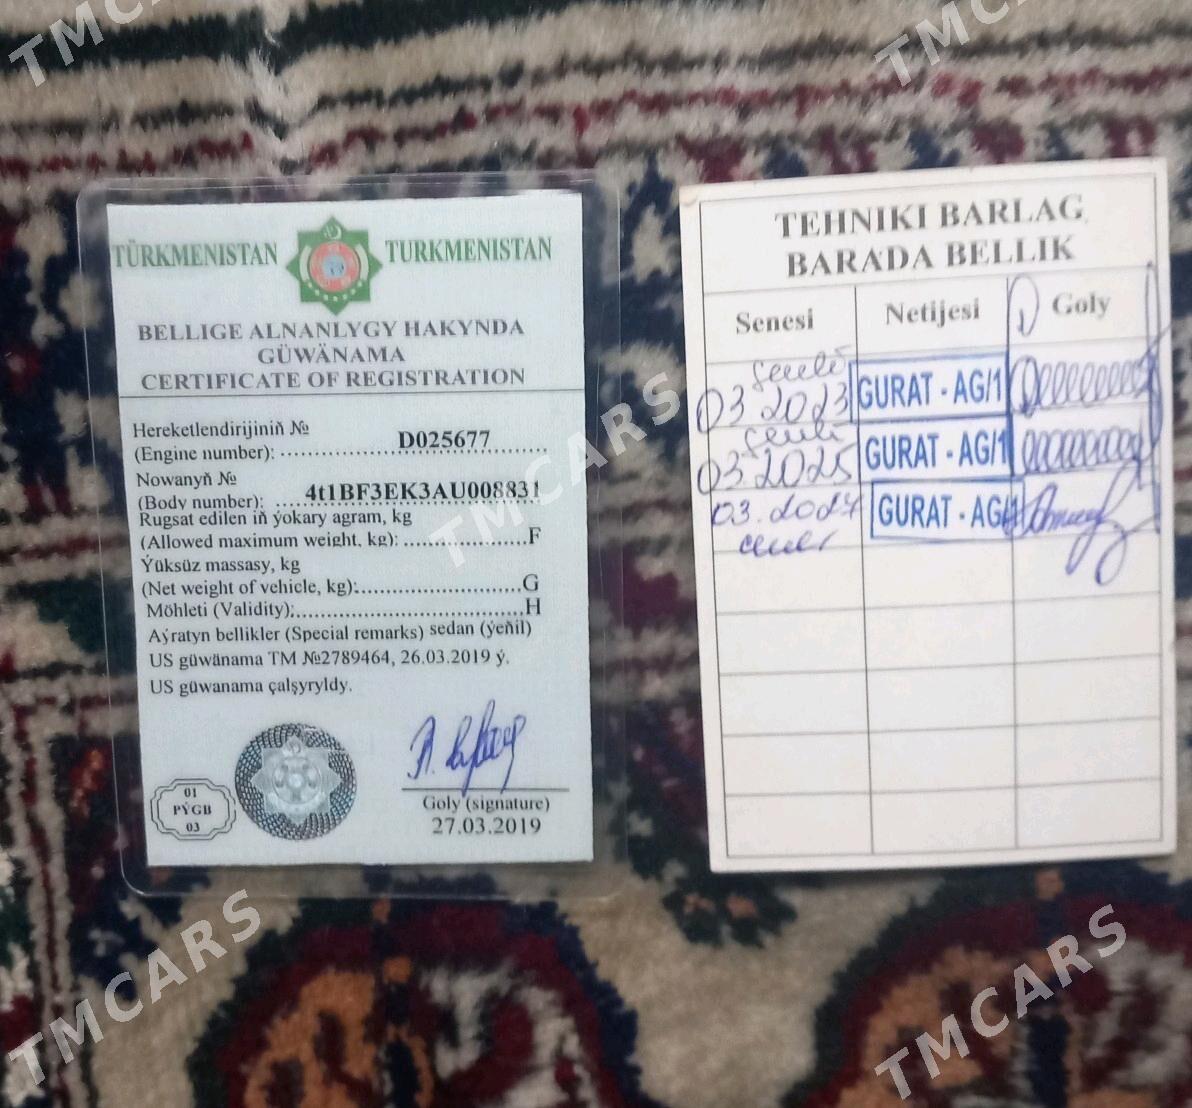 TMCARS
TMCARS
TÜRKMENISTAN TURKMENISTAN
BELLIGE ALNANLYGY HAKYNDA
GÜWÄNAMA
CERTIFICATE OF REGISTRATION
Hereketlendirijiniň №
(Engine number): D025677
Nowanyň №
(Body number): 4t1BF3EK3AU008831
Rugsat edilen iň ýokary agram, kg
(Allowed maximum weight, kg): F
Ýüksüz massasy, kg
(Net weight of vehicle, kg): G
Möhleti (Validity): H
Aýratyn bellikler (Special remarks) sedan (ýeňil)
US güwänama TM №2789464, 26.03.2019 ý.
US güwanama çalşyryldy.
01
PÝGB
03
Goly (signature)
27.03.2019
TEHNIKI BARLAG
BARADA BELLIK
Senesi Netijesi Goly
03.2023 GURAT - AG/1
03.2025 GURAT - AG/1
03.2027 GURAT - AG/1
TMCARS
TMCARS
TMCARS
TMCARS